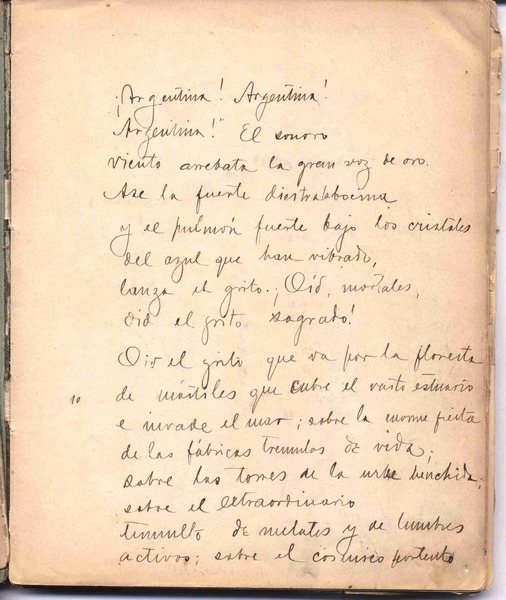 ¡Argentina! Argentina!
Argentina!" El sonoro
viento arrebata la gran voz de oro.
Ase la fuerte diestra la bocina
y el pulmón fuerte bajo los cristales
del azul que han vibrado,
lanza el grito. ¡Oíd, mortales,
oid el grito sagrado!
Oid el grito que va por la floresta
10 de mástiles que cubre el vasto estuario
e invade el mar; sobre la enorme fiesta
de las fábricas trémulas de vida;
sobre las torres de la urbe henchida;
sobre el extraordinario
tumulto de metales y de lumbres
activos; sobre el cósmico portento